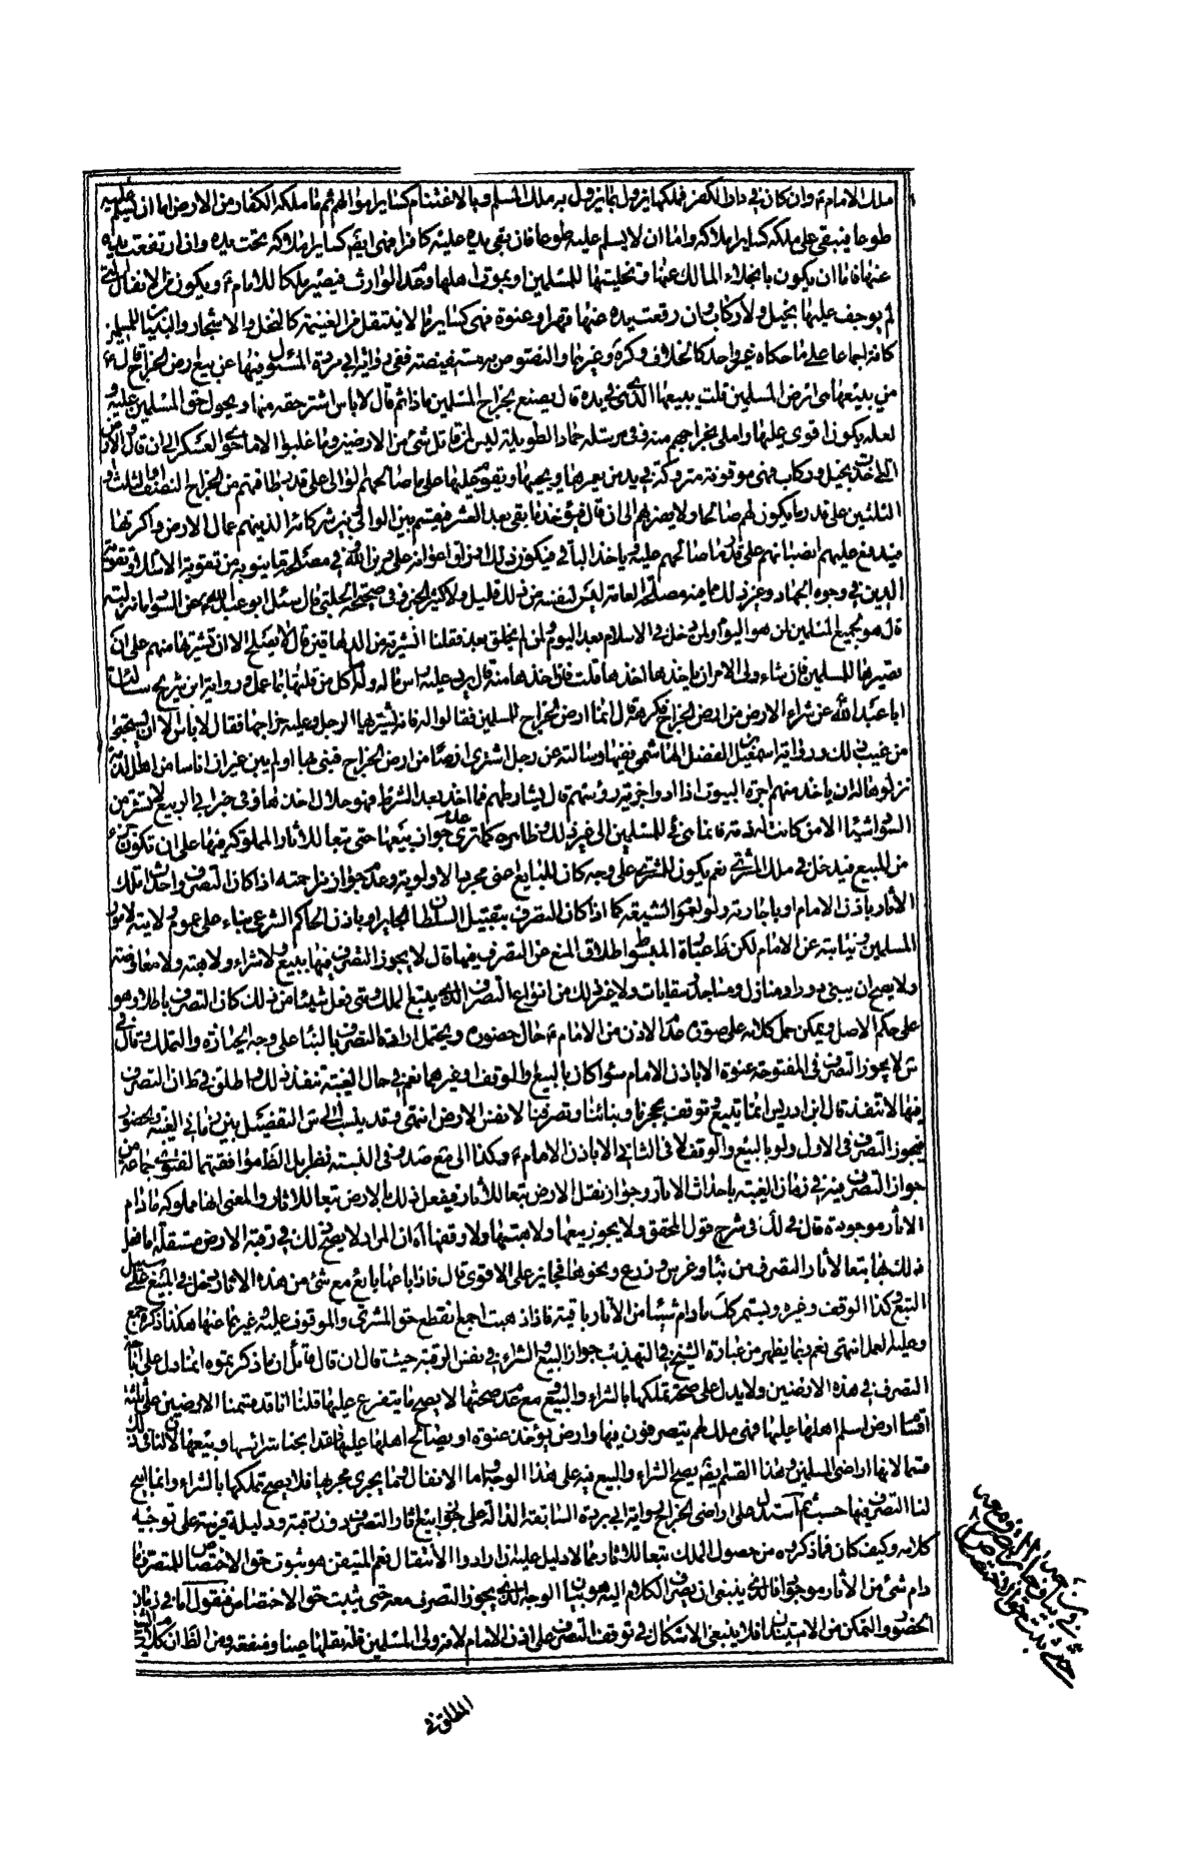 ملك الامام ع وان كان في دار الكفر فملكها يزول بما يزول به ملك المسلم وبالاغتنام كساير اموالهم ثم ما ملكه الكفار من الارض اما ان يسلم عليه
طوعا فيبقى على ملكه كساير املاكه واما ان لا يسلم عليه طوعا فان بقى يده عليه كافرا فهي ايضم كساير املاكه تحت يده وان ارتفعت يده
عنها فاما ان يكون بانجلاء المالك عنها وتخليتها للمسلمين او بموت اهلها وعدم الوارث فيصير ملكا للامام ع ويكون من الانفال التي
لم يوجف عليها بخيل ولا ركاب وان رفعت يده عنها قهرا وعنوة فهي كساير ما لا ينتقل من الغنيمة كالنخل والاشجار والبنيان للمسلمين
كافة اجماعا على ما حكاه غير واحد كالخلاف وكرة وغيرهما والنصوص به مستفيضة ففي رواية ابي بردة المسئول فيها عن بيع ارض الخراج قال ع
من يبيعها هي ارض المسلمين قلت يبيعها الذي هي في يده قال يصنع بخراج المسلمين ماذا ثم قال لا باس اشتر حقه منها ويحول حق المسلمين عليه و
لعله يكون اقوى عليها واملى بخراجهم منه وفي مرسلة حماد الطويلة ليس لمن قاتل شئ من الارضين وما غلبوا الا ما حوى العسكر الى ان قال والارض
التي اخذت بخيل وركاب فهي موقوفة متروكة في يد من يعمرها ويحييها ويقوم عليها على ما صالحهم الوالي على قدر طاقتهم من الخراج النصف والثلث و
الثلثين على قدر ما يكون لهم صالحا ولا يضر بهم الى ان قال فيؤخذ ما بقى بعد العشر فيقسم بين الوالي وبين شركائه الذين هم عمال الارض واكرتها
فيدفع عليهم انصبائهم على قدر ما صالحهم عليه وياخذ الباقي فيكون ذلك ارزاق اعوانه على دين الله وفي مصلحة ما ينوبه من تقوية الاسلام وتقوية
الدين في وجوه الجهاد وغير ذلك مما فيه مصلحة العامة ليس لنفسه من ذلك قليل ولا كثير الخبر وفي صحيحة الحلبي قال سئل ابو عبد الله ع عن السواد ما منزلته
قال هو لجميع المسلمين لمن هو اليوم ولمن يدخل في الاسلام بعد اليوم ولمن لم يخلق بعد فقلنا انشتريه من الدهاقين قال لا يصلح الا ان تشتريها منهم على ان
تصيرها للمسلمين فان شاء ولى الامر ان ياخذها اخذها قلت فان اخذها منه قال يرد عليه راس ماله وله ما اكل من غلتها بما عمل ورواية ابن شريح سالت
ابا عبد الله عن شراء الارض من ارض الخراج فكرهه قال انما ارض الخراج للمسلمين فقالوا له فانه يشتريها الرجل وعليه خراجها فقال لا باس الا ان يستحيى
من عيب ذلك ورواية اسمعيل بن الفضل الهاشمي ففيها وسالته عن رجل اشترى ارضا من ارض الخراج فبنى بها او لم يبن غير ان اناسا من اهل الذمة
نزلوها له ان ياخذ منهم اجرة البيوت اذا ادوا جزية رؤسهم قال يشارطهم فما اخذ بعد الشرط فهو حلال اخذها وفي خبر ابي الربيع لا تشتر من
السواد شيئا الا من كانت له ذمة فانما هي فئ للمسلمين الى غير ذلك وظاهره كما ترى عدم جواز بيعها حتى تبعا للاثار المملوكة فيها على ان تكون جزء
من المبيع فيدخل في ملك المشتري نعم يكون للمشتري على وجه كان للبايع اعنى مجرد الاولوية وعدم جواز مزاحمته اذا كان التصرف واحداث تلك
الاثار باذن الامام او باجازته ولو لعموم الشيعة كما اذا كان التصرف بتقبيل السلطان الجاير او باذن الحاكم الشرعي بناء على عموم ولايته لامور
المسلمين ونيابته عن الامام لكن ظ عبارة المبسوط اطلاق المنع عن التصرف فيها قال لا يجوز التصرف فيها ببيع ولا شراء ولا هبة ولا معاوضة
ولا يصح ان يبنى دورا ومنازل ومساجد وسقايات ولا غير ذلك من انواع التصرف الذي يتبع الملك ومتى فعل شيئا من ذلك كان التصرف باطلا وهو
على حكم الاصل ويمكن حمل كلامه على صورة عدم الاذن من الامام ع حال حضوره ويحتمل ارادة التصرف بالبناء على وجه الحيازة والتملك وقال في
س لا يجوز التصرف في المفتوحة عنوة الا باذن الامام سواء كان بالبيع والوقف او غيرهما نعم في حال الغيبة تنفذ ذلك واطلق في ط ان التصرف
فيها لا تنفذ قال ابن ادريس انما تبيع وتوقف تحجيرنا وبنائنا وتصرفنا لا نفس الارض انتهى وقد ينسب الى س التفصيل بين زماني الغيبة والحضور
فيجوز التصرف في الاول ولو بالبيع والوقف لا في الثاني الا باذن الامام ع وكذا الى مع صد وفي النسبة نظر بل الظ موافقتهما لفتوى جماعة من
جواز التصرف فيه في زمان الغيبة باحداث الاثار وجواز نقل الارض تبعا للاثار فيفعل ذلك بالارض تبعا للاثار والمعنى انها مملوكة مادام
الاثار موجودة قال في لك في شرح قول المحقق ولا يجوز بيعها ولا هبتها ولا وقفها اه ان المراد لا يصح ذلك في رقبة الارض مستقلة اما فعل
ذلك بها تبعا لاثار التصرف من بناء وغرس وزرع ونحوها فجايز على الاقوى قال فاذا باعها بايع مع شئ من هذه الاثار دخل في المبيع على سبيل
التبع وكذا الوقف وغيره ويستمر كك مادام شئ من الاثار باقية فاذا ذهبت اجمع انقطع حق المشتري والموقوف عليه وغيرهما عنها هكذا ذكره جمع
وعليه العمل انتهى نعم ربما يظهر من عبارة الشيخ في التهذيب جواز البيع والشراء في نفس الرقبة حيث قال ان قال قائل ان ما ذكرتموه انما دل على اباحة
التصرف في هذه الارضين ولا يدل على صحة تملكها بالشراء والبيع ومع عدم صحتها لا يصح ما يتفرع عليها قلنا انا قد قسمنا الارضين على ثلثة
اقسام ارض اسلم اهلها عليها فهي ملك لهم يتصرفون فيها وارض يؤخذ عنوة او يصالح اهلها عليها فقد ابحنا شرائها وبيعها لان لنا في ذلك
قسما لانها اراضي المسلمين وهذا القسم ايضم يصح الشراء والبيع فيه على هذا الوجه واما الانفال وما يجرى مجريها فلا يصح تملكها بالشراء وانما ابيح
لنا التصرف فيها حسب ثم استدل على اراضي الخراج برواية ابي بردة السابقة الدالة على جواز بيع اثار التصرف دون رقبته ودليله قرينة على توجيه
كلامه وكيف كان فما ذكروه من حصول الملك تبعا للاثار مما لا دليل عليه ان ارادوا الانتقال نعم المتيقن هو ثبوت حق الاختصاص للمتصرف ما
دام شئ من الاثار موجودا فالذي ينبغي ان يصرف الكلام اليه هو بيان الوجه الذي يجوز التصرف معه حتى يثبت حق الاختصاص فنقول اما في زمان
الحضور والتمكن من الاستيذان فلا ينبغي الاشكال في توقف التصرف على اذن الامام لانه ولى المسلمين فله نقلها عينا ومنفعة ومن الظ ان كلام الشيخ
المطلق في